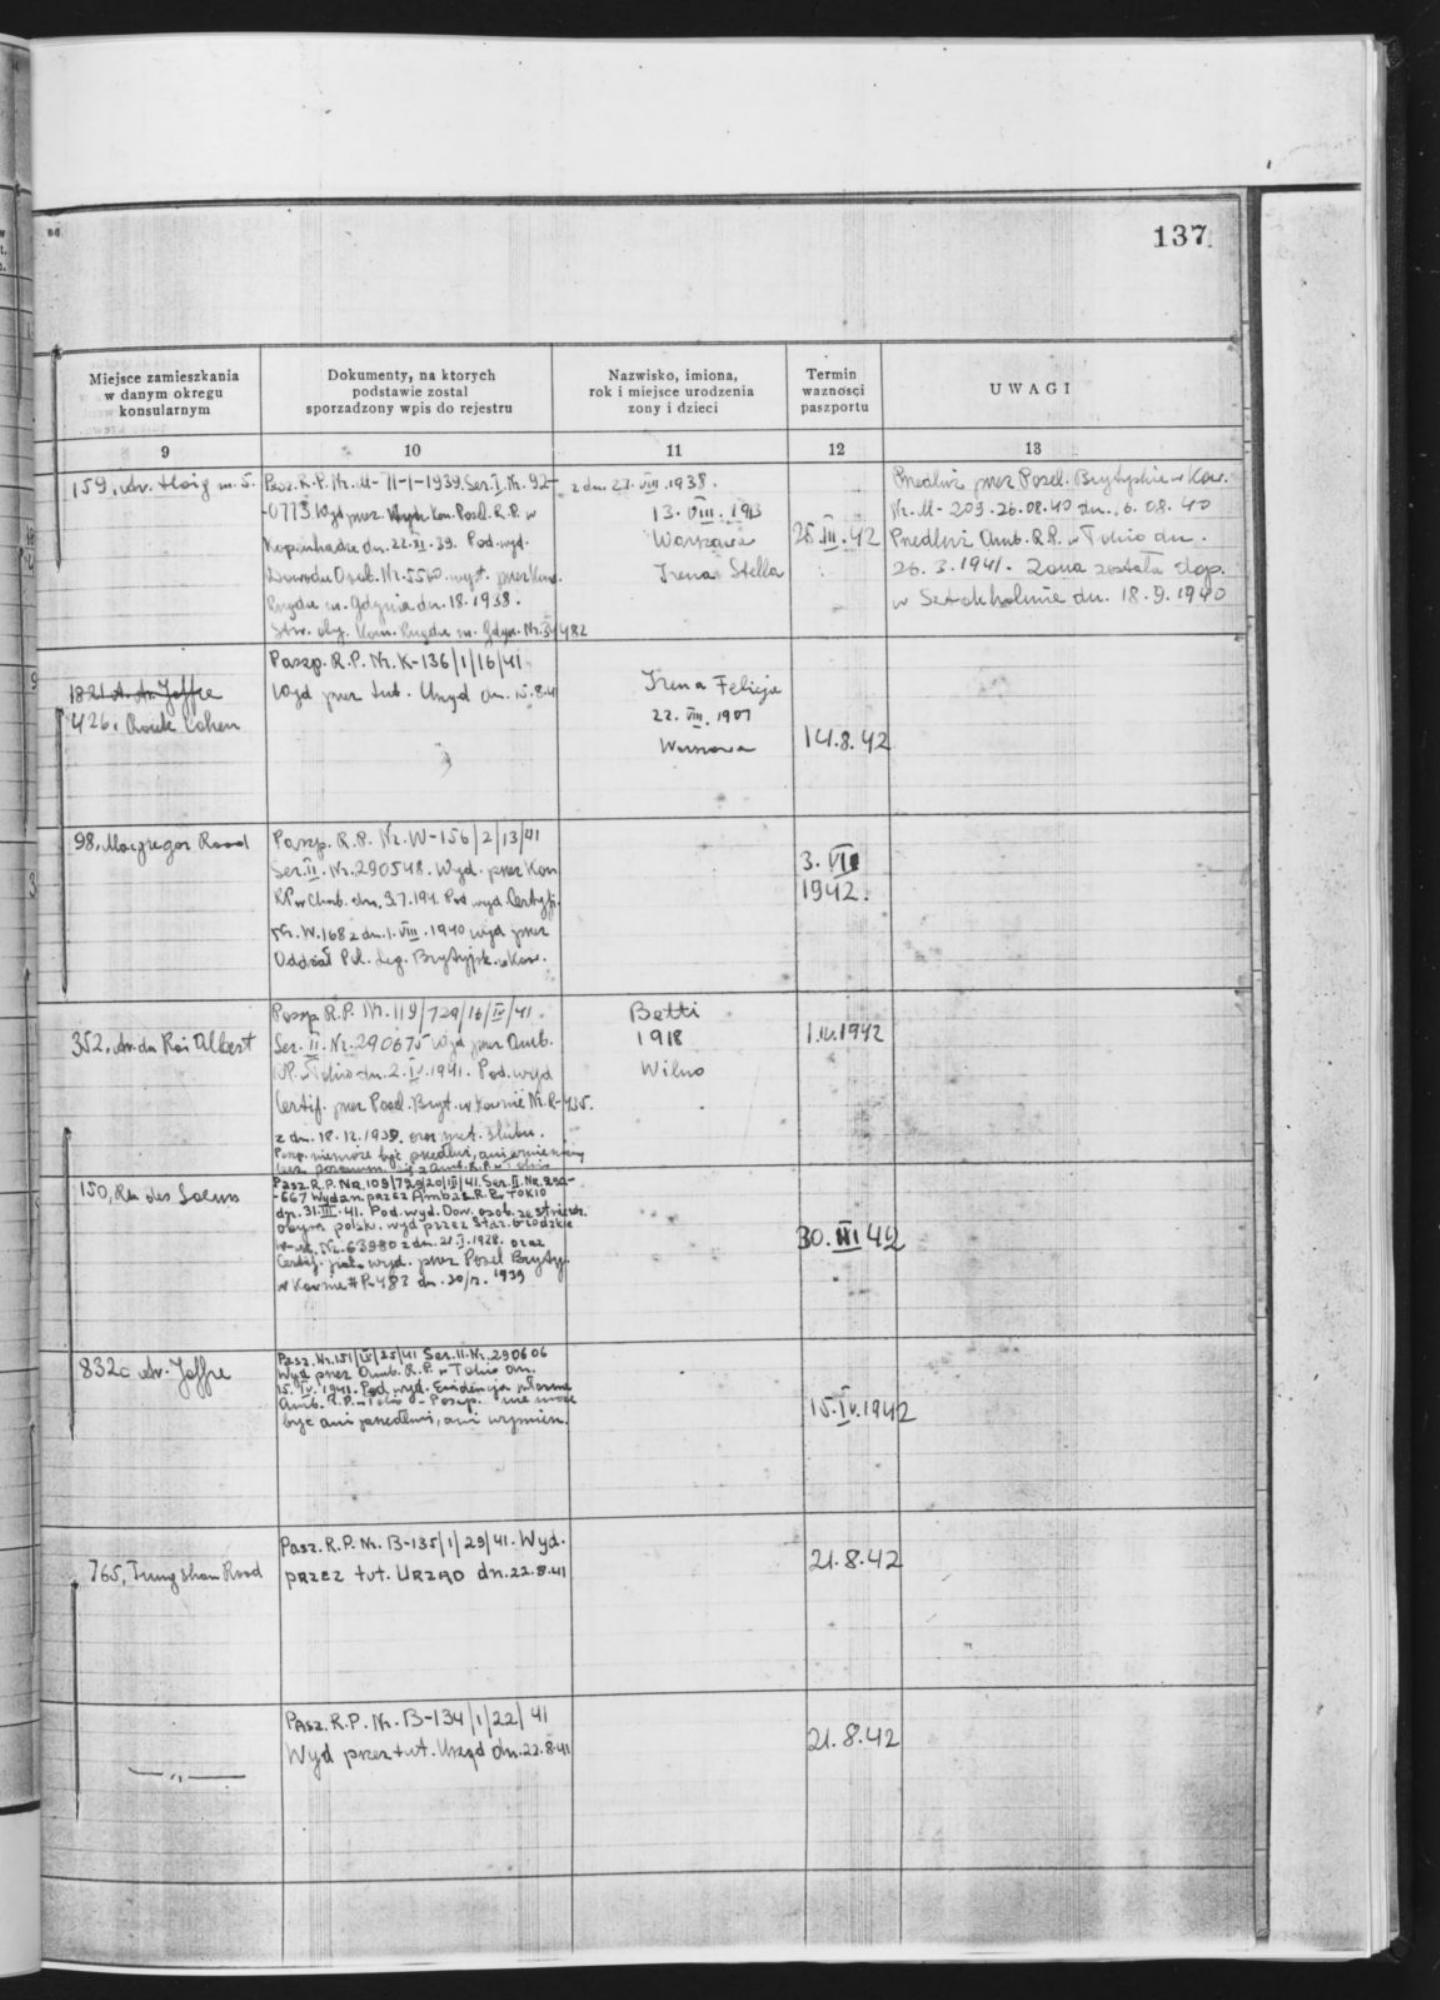 137
Miejsce zamieszkania
w danym okregu
konsularnym
Dokumenty, na ktorych
podstawie zostal
sporzadzony wpis do rejestru
Nazwisko, imiona,
rok i miejsce urodzenia
zony i dzieci
Termin
waznosci
paszportu
UWAGI
9
10
11
12
13
159, Av. Haig m. 5.
Pasz. R.P. Nr. M-11-1-1939 Ser. I. Nr. 92-
-0773 Wyd przez Kon. Posel. R.P. w
Kopenhadze dn. 22.XI.39. Pod. wyd.
Dowodu Osob. Nr. 5510 wyst. przez Kom.
Rządu m. Gdynia dn. 18.1938.
Stw. oby. Kom. Rządu m. Gdyn. Nr. 34482
z dn. 27.VIII.1938.
13.VIII.1913
Warszawa
Irena Stella
25.III.42
Przedłuż przez Posel. Brytyjskie w Kow.
Nr. M-209.26.08.40 dn. 6.08.40
Przedłuż Amb. R.P. w Tokio dn.
26.3.1941. Zona została dop.
w Sztokholmie dn. 18.9.1940
1821 Av. Joffre
426, Route Cohen
Paszp. R.P. Nr. K-136/1/16/41
Wyd przez tut. Urząd dn. 15.8.41
Irena Felicja
22.VIII.1907
Warszawa
14.8.42
98, Macgregor Road
Paszp. R.P. Nr. W-156/2/13/41
Ser. II. Nr. 290548. Wyd. przez Kon
RP w Charb. dn. 3.7.194. Pod wyd. Certyfi.
Nr. W.168 z dn. 1.VIII.1940 wyd przez
Oddział Pol. Leg. Brytyjsk. w Kow.
3.VII
1942.
352, Av. du Roi Albert
Paszp R.P. Nr. 119/729/16/IV/41.
Ser. II. Nr. 290675 Wyd przez Amb.
RP. w Tokio dn. 2.IV.1941. Pod. wyd
Certif. przez Posel. Bryt. w Kownie Nr. R-435.
z dn. 18.12.1939. oraz met. ślubu.
Paszp. niemoże być przedłuż, ani wymieniony
bez porozum. się z Amb. R.P. w Tokio
Betti
1918
Wilno
1.IV.1942
150, Rue des Soeurs
Pasz. R.P. Nr. 109/729/20/III/41. Ser. II. Nr. 290-
-667 Wydan. przez Ambas. R.P. Tokio
dn. 31.III.41. Pod. wyd. Dow. osob. ze stwierdz.
obywa polsk. wyd przez Star. Grodzkie
Nr. 63980 z dn. 21.I.1928. oraz
Certif. wyd. przez Posel Brytyj.
w Kownie # R-483 dn. 20/12. 1939
30.III 42
832c Av. Joffre
Pasz. Nr. 151/IV/25/41 Ser. II. Nr. 290606
Wyd przez Amb. R.P. w Tokio dn.
15.IV.1941. Pod. wyd. Ewidencja własna
Amb. R.P. w Tokio - Paszp. nie może
być ani przedłuż, ani wymien.
15.IV.1942
765, Tungshan Road
Pasz. R.P. Nr. B-135/1/29/41. Wyd.
przez tut. Urząd dn. 22.8.41
21.8.42
— „ —
Pasz. R.P. Nr. B-134/1/22/41
Wyd przez tut. Urząd dn. 22.8.41
21.8.42